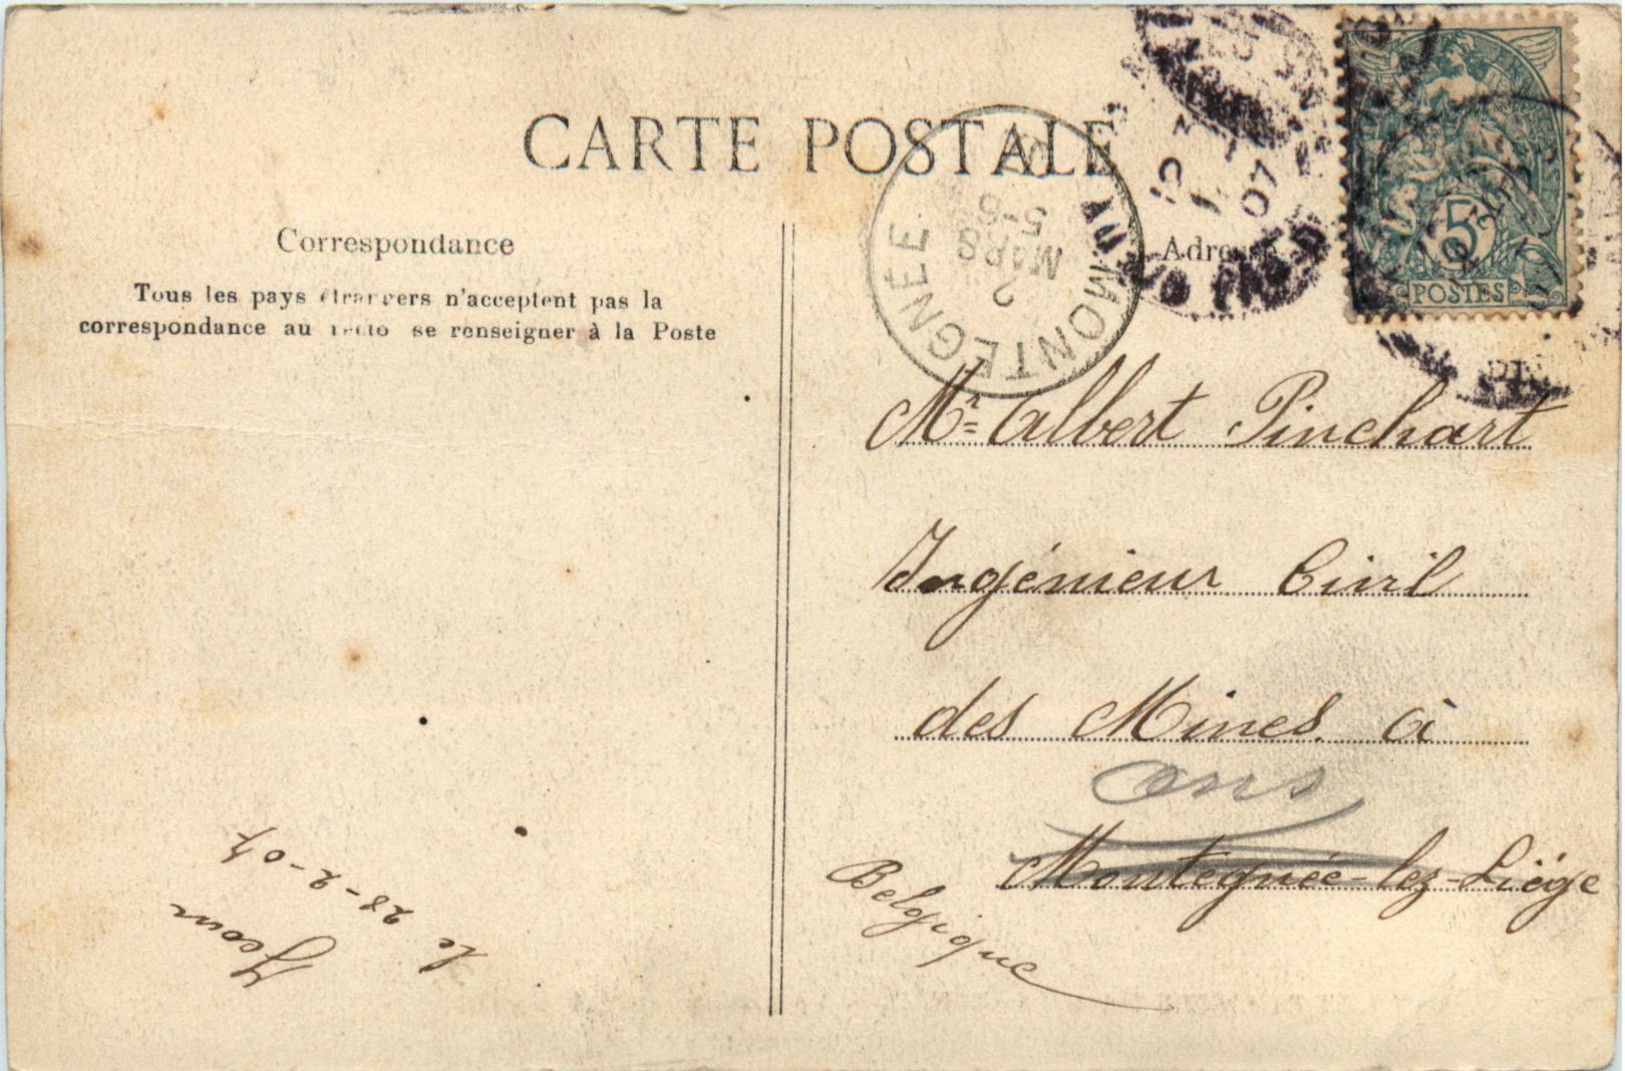 CARTE POSTALE
Correspondance
Tous les pays étrangers n'acceptent pas la
correspondance au recto se renseigner à la Poste
MONTEGNÉE
2
MARS
5-6
07
10
07
5
POSTES
Mr Albert Pinchart
Ingénieur Civil
des Mines à
Ans
Montegnée-lez-Liége
Belgique
le 28-2-07